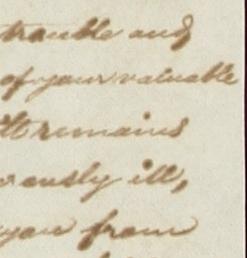 trouble and
of your valuable
remains
ill,
you from